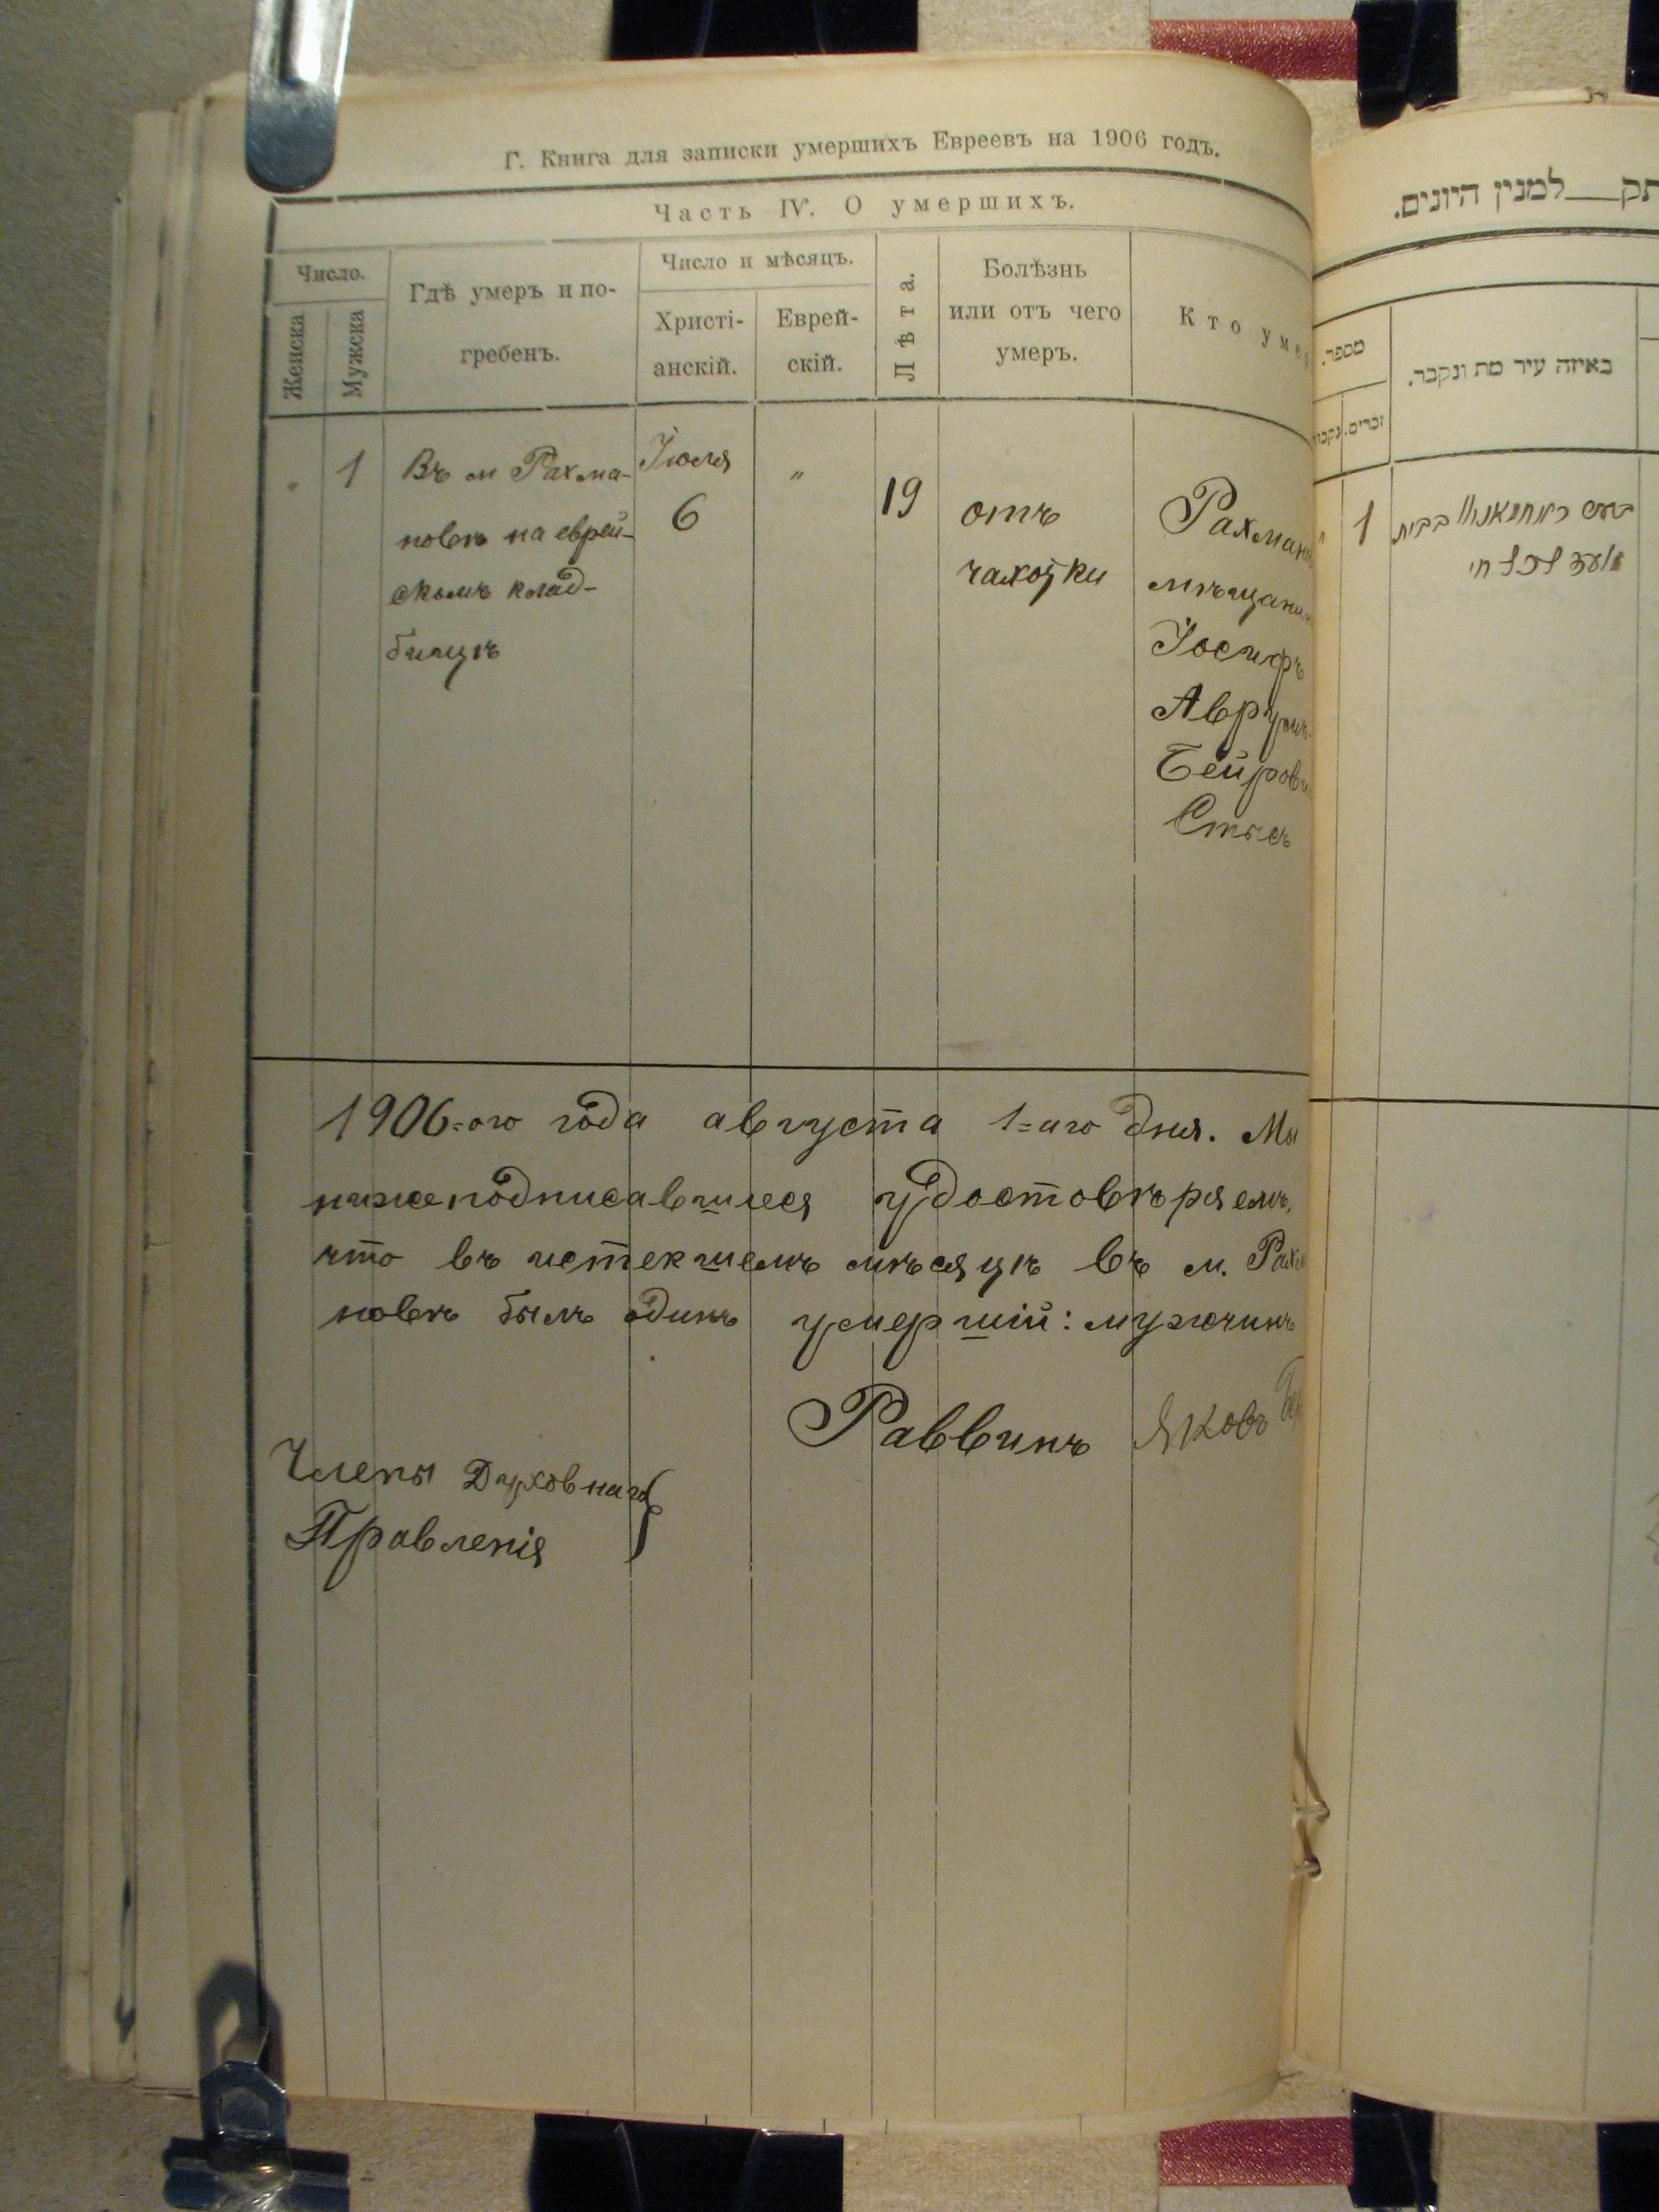 Г. Книга для записки умершихъ Евреевъ на 1906 годъ.
Часть IV. О умершихъ.
Число.
Женска
Мужска
Гдѣ умеръ и по-
гребенъ.
Число и мѣсяцъ.
Христі-
анскій.
Еврей-
скій.
Лѣта.
Болѣзнь
или отъ чего
умеръ.
Кто умер
"
1
Въ м Рахма-
новкѣ на еврей-
скомъ клад-
бищѣ
Іюля
6
"
19
отъ
чахотки
Рахман
мѣщанин
Іосифъ
Аврумъ-
Бейрови
Стысъ
1906=ого года августа 1=аго дня. Мы
нижеподписавшиеся удостовѣряемъ,
что въ истекшемъ мѣсяцѣ въ м. Рахм
новкѣ былъ одинъ умершій: мужчинъ
Раввинъ Яковъ
Члены Духовнаго
Правленія
למנין היונים.
מספר.
זכרים.
נקבו
באיזה עיר מת ונקבר.
"
1